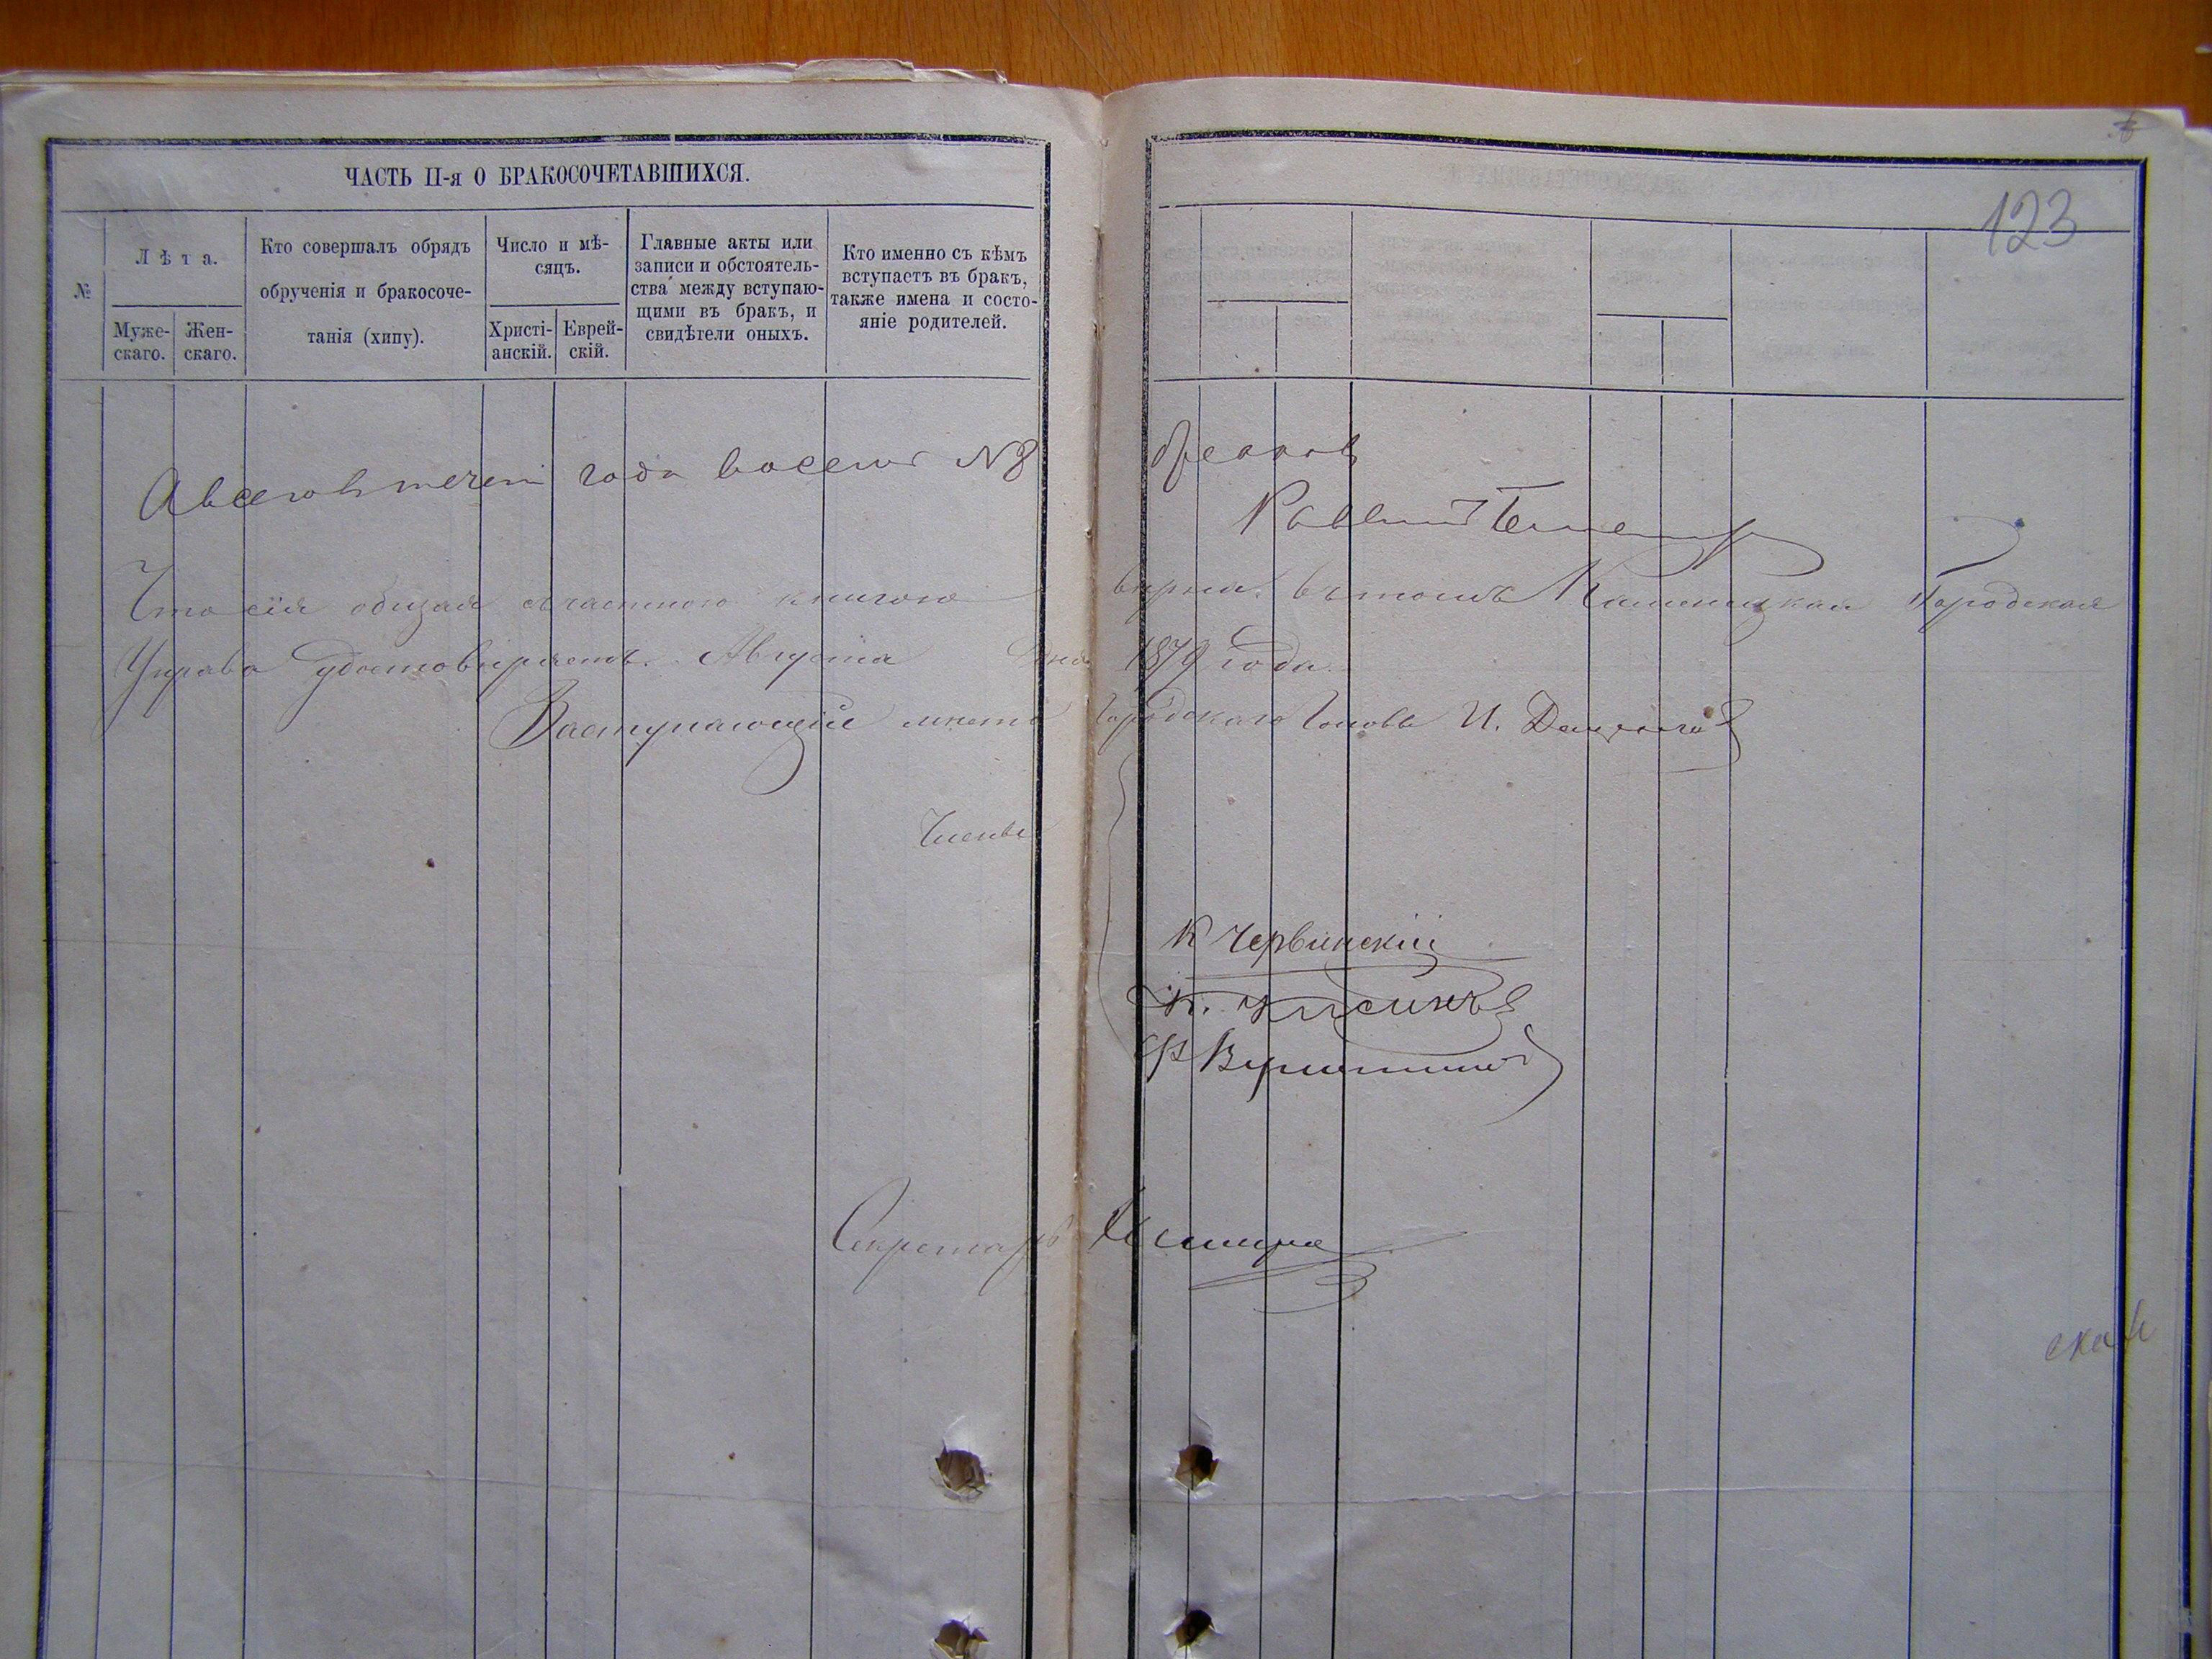 ЧАСТЬ II-я О БРАКОСОЧЕТАВШИХСЯ.
№
Лѣта.
Муже-
скаго.
Жен-
скаго.
Кто совершалъ обрядъ
обрученія и бракосоче-
танія (хипу).
Число и мѣ-
сяцъ.
Христі-
анскій.
Еврей-
скій.
Главные акты или
записи и обстоятель-
ства между вступаю-
щими въ бракъ, и
свидѣтели оныхъ.
Кто именно съ кѣмъ
вступаетъ въ бракъ,
также имена и состо-
яніе родителей.
123
А всего въ течени года восемь №8 браковъ
Раввинъ
Что сія общая съ частною книгою вѣрна. въ томъ Каменецкая Городская
Управа удостовѣряетъ. Августа дня 1879 года.
Заступающій мѣсто Городскаго Головы И.
Члены
К Червинскій
К.
Ф
Секретарь